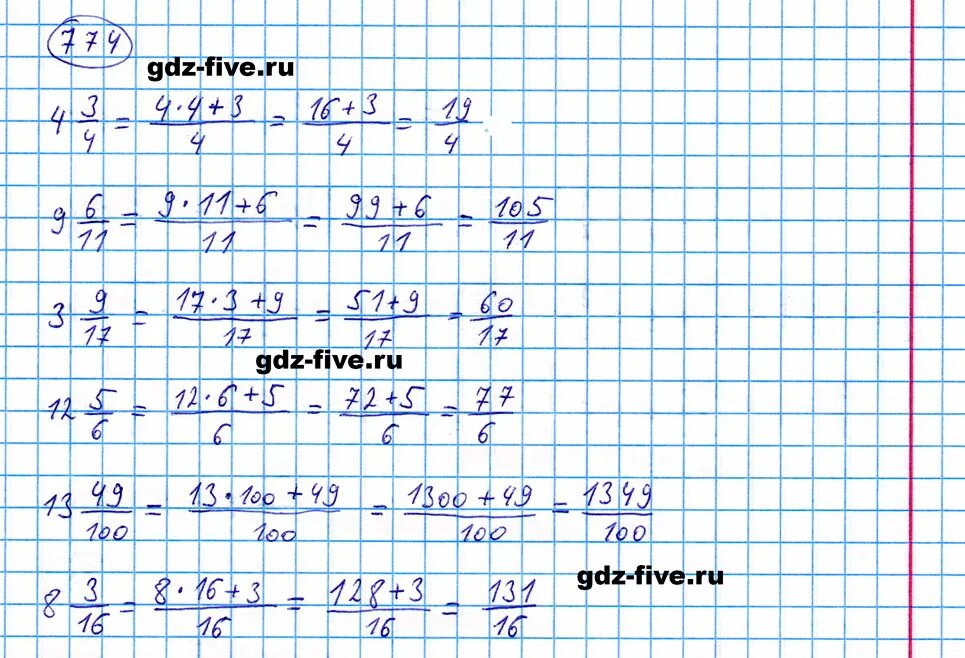 774
gdz-five.ru
4 3/4 = (4·4+3)/4 = (16+3)/4 = 19/4
9 6/11 = (9·11+6)/11 = (99+6)/11 = 105/11
3 9/17 = (17·3+9)/17 = (51+9)/17 = 60/17
gdz-five.ru
12 5/6 = (12·6+5)/6 = (72+5)/6 = 77/6
13 49/100 = (13·100+49)/100 = (1300+49)/100 = 1349/100
gdz-five.ru
8 3/16 = (8·16+3)/16 = (128+3)/16 = 131/16